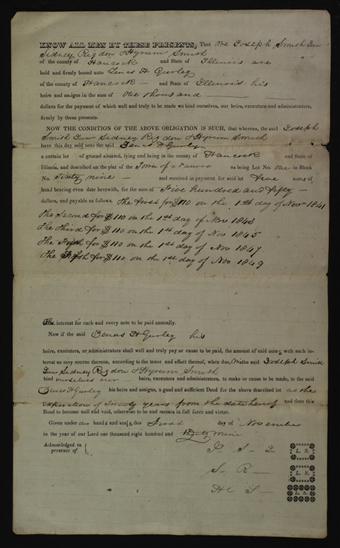 KNOW ALL MEN BY THESE PRESENTS; That We Joseph Smith Jun
Sidney Rigdon & Hyrum Smith
of the county of Hancock and State of Illinois are
held and firmly bound unto Zenas H Gurley
of the county of Hancock and State of Illinois his
heirs and assigns in the sum of One thousand
dollars for the payment of which well and truly to be made we bind ourselves, our heirs, executors and administrators,
firmly by these presents.
NOW THE CONDITION OF THE ABOVE OBLIGATION IS SUCH, that whereas, the said Joseph
Smith Jun Sidney Rigdon & Hyrum Smith
have this day sold unto the said Zenas H Gurley
a certain lot of ground situated, lying and being in the county of Hancock and State of
Illinois, and described on the plat of the Town of as being Lot No. One in Block
No. and received in payment for said lot
hand bearing even date herewith, for the sum of Five hundred and fifty
dollars, and payable as follows. The first for $110 on the 1st day of Nov 1841
The Second for $110 on the 1st day of Nov 1843
The third for $110 on the 1st day of Nov 1845
The for $110 on the 1st day of Nov 1847
The fifth for $110 on the 1st day of Nov 1849
The interest for each and every note to be paid annually.
Now if the said Zenas H Gurley his
heirs, executors, or administrators shall well and truly pay or cause to be paid, the amount of said notes, with such in-
terest as may accrue thereon, according to the tenor and effect thereof, when due, the said Joseph Smith
Jun Sidney Rigdon & Hyrum Smith
bind ourselves our heirs, executors and administrators, to make or cause to be made, to the said
Zenas H Gurley his heirs and assigns, a good and sufficient Deed for the above described lot at the
expiration of years from the date hereof and then this
Bond to become null and void, otherwise to be and remain in full force and virtue.
Given under our hands and seals, this day of November
in the year of our Lord one thousand eight hundred and thirty nine
Acknowledged in
presence of
J S L.S.
S R L.S.
H S L.S.